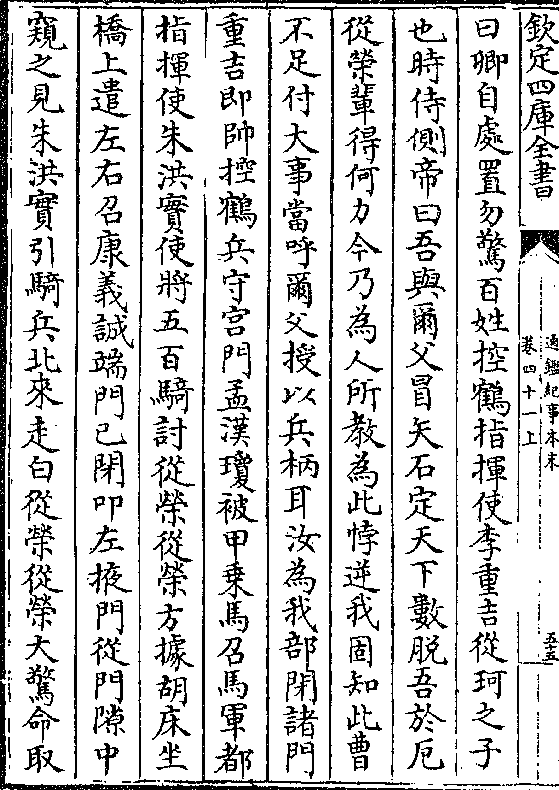 欽定四庫全書
通鑑紀事本末
卷四十一上
五十五
曰卿自處置勿驚百姓控鶴指揮使李重吉從珂之子
也時侍側帝曰吾與爾父冒矢石定天下數脫吾於厄
從榮輩得何力今乃為人所教為此悖逆我固知此曹
不足付大事當呼爾父授以兵柄耳汝為我部閉諸門
重吉即帥控鶴兵守宮門孟漢瓊被甲乗馬召馬軍都
指揮使朱洪實使將五百騎討從榮從榮方據胡床坐
橋上遣左右召康義誠端門已閉叩左掖門從門隙中
窺之見朱洪實引騎兵北來走白從榮從榮大驚命取